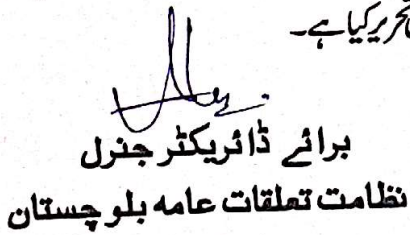 تحریر کیا ہے۔
برائے ڈائریکٹر جنرل
نظامت تعلقات عامہ بلوچستان